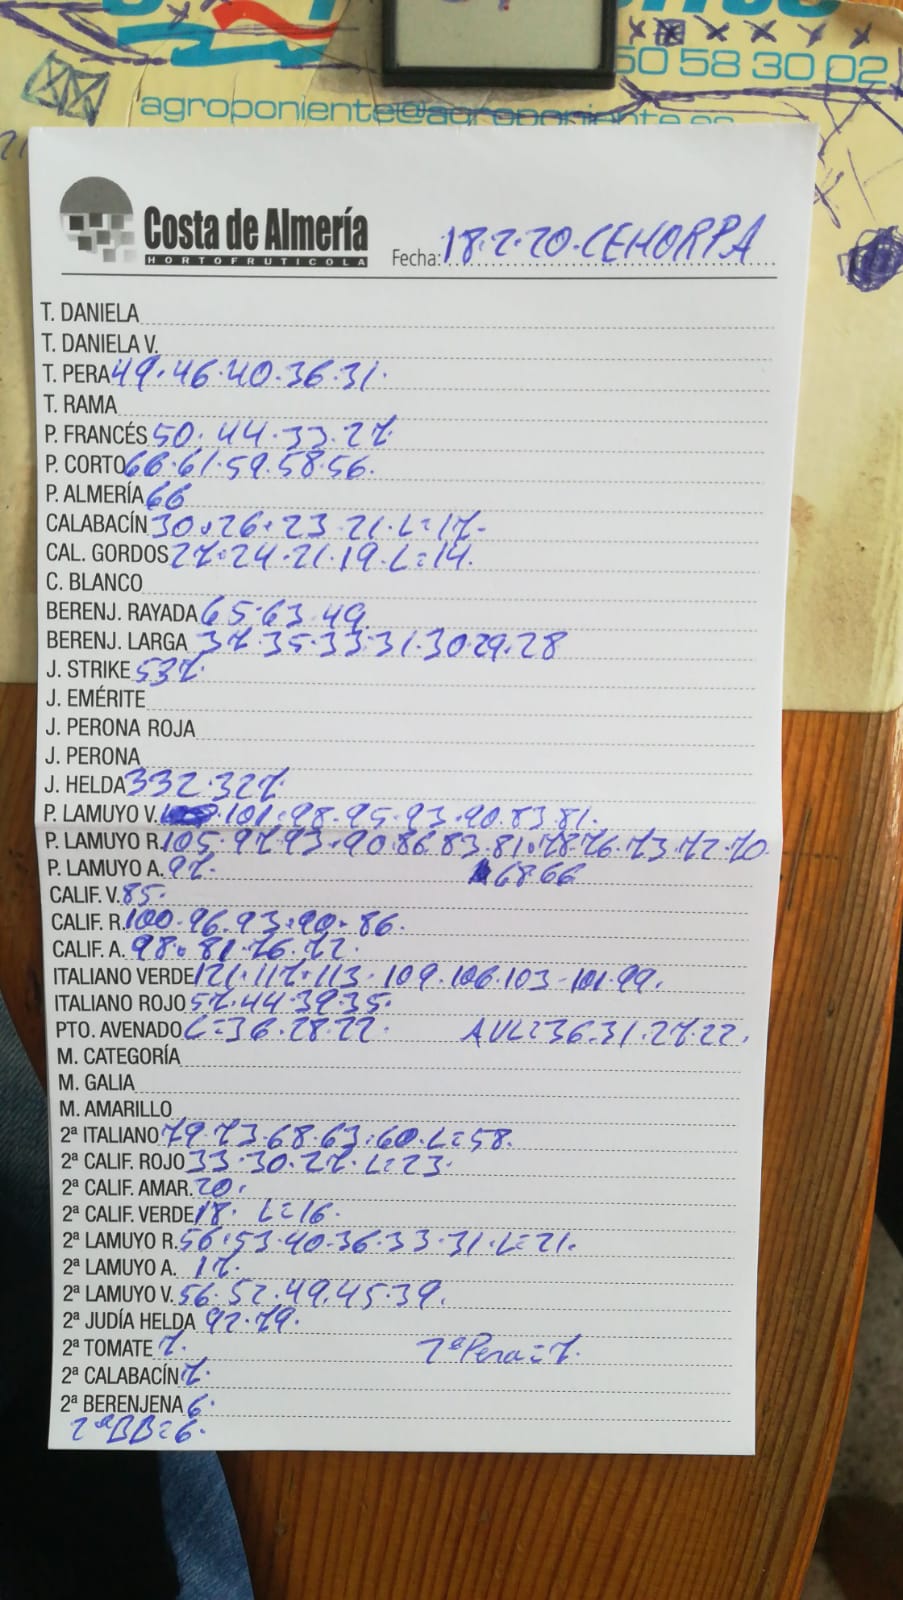 50 58 30 02
agroponiente@agroponiente.es
Costa de Almería
HORTOFRUTICOLA
Fecha: 18.2.20. CEHORPA
T. DANIELA
T. DANIELA V.
T. PERA 49.46.40.36.31.
T. RAMA
P. FRANCÉS 50.44.33.27.
P. CORTO 66.61.59.58.56.
P. ALMERÍA 66
CALABACÍN 30.26.23.21.L=17.
CAL. GORDOS 27.24.21.19.L=14.
C. BLANCO
BERENJ. RAYADA 65.63.49.
BERENJ. LARGA 37.35.33.31.30.29.28
J. STRIKE 537.
J. EMÉRITE
J. PERONA ROJA
J. PERONA
J. HELDA 332.327.
P. LAMUYO V. 101.98.95.93.90.83.81.
P. LAMUYO R. 105.97.93.90.86.83.81.78.76.73.72.70.
P. LAMUYO A. 97. 68.66
CALIF. V. 85.
CALIF. R. 100.96.93.90.86.
CALIF. A. 98.81.76.72.
ITALIANO VERDE 121.117.113.109.106.103.101.99.
ITALIANO ROJO 57.44.39.35.
PTO. AVENADO L=36.28.22. AVL=36.31.27.22.
M. CATEGORÍA
M. GALIA
M. AMARILLO
2ª ITALIANO 79.73.68.63.60.L=58.
2ª CALIF. ROJO 33.30.27.L=23.
2ª CALIF. AMAR. 20.
2ª CALIF. VERDE 18. L=16.
2ª LAMUYO R. 56.53.40.36.33.31.L=21.
2ª LAMUYO A. 17.
2ª LAMUYO V. 56.52.49.45.39.
2ª JUDÍA HELDA 92.79.
2ª TOMATE 7. 2ª Pera=7.
2ª CALABACÍN 7.
2ª BERENJENA 6.
2ª BB=6.